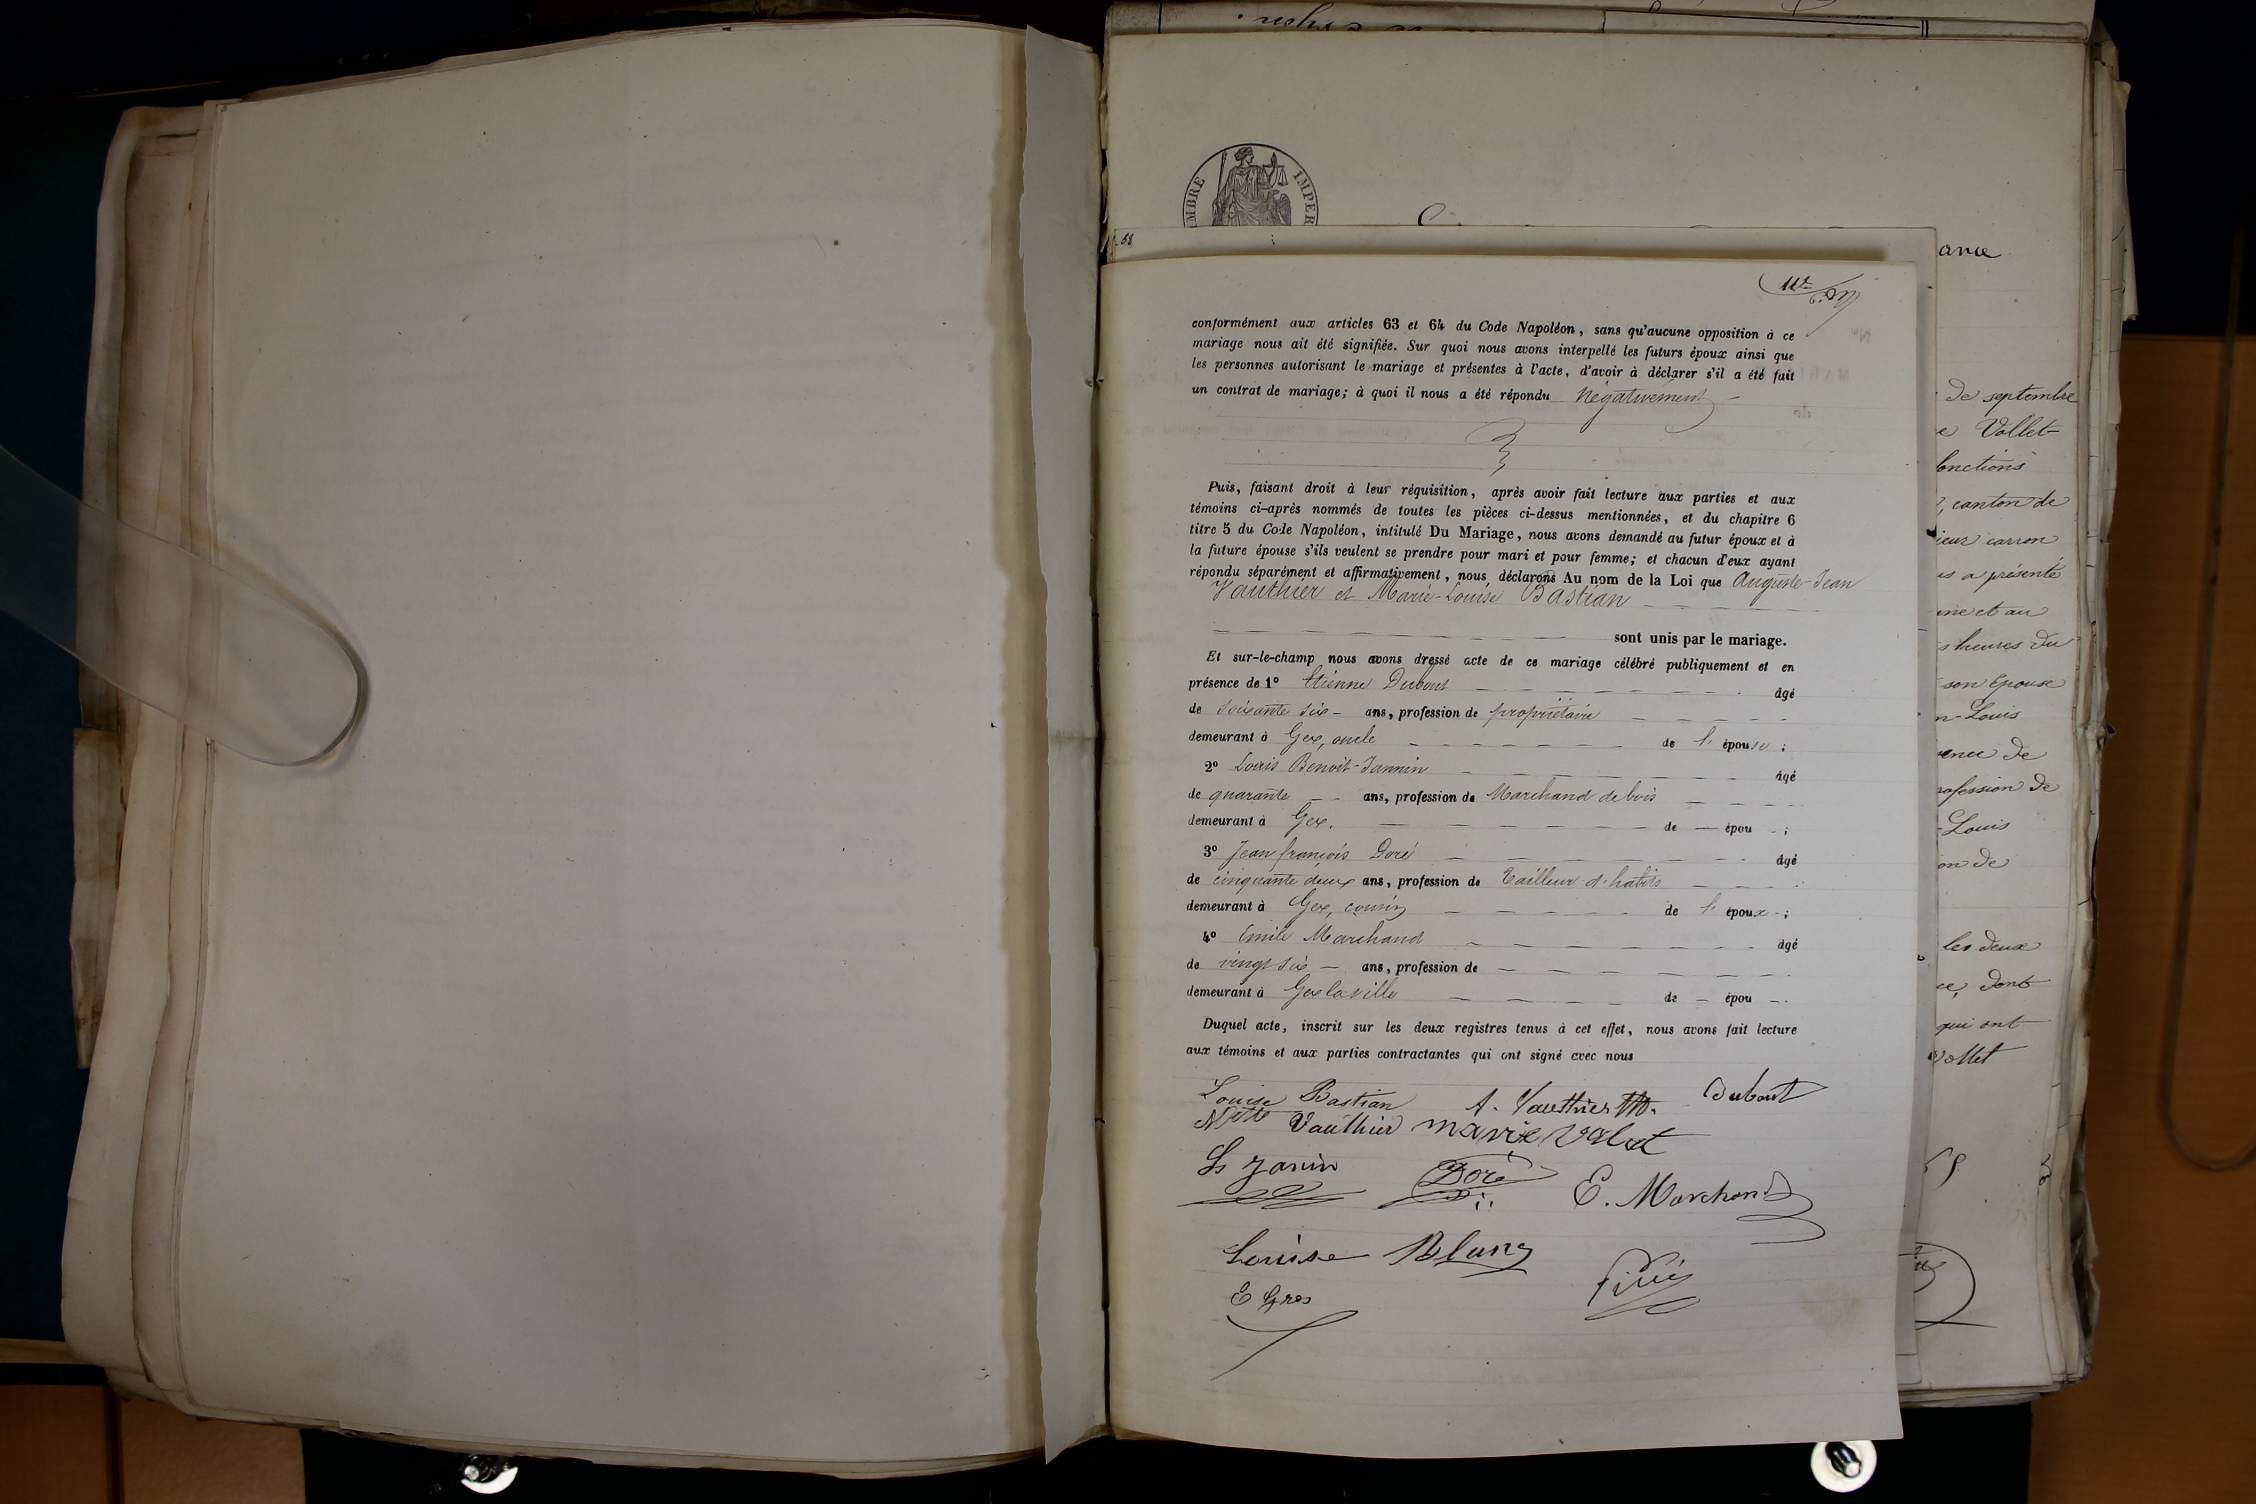 TIMBRE IMPER
58
ance
conformément aux articles 63 et 64 du Code Napoléon, sans qu'aucune opposition à ce
mariage nous ait été signifiée. Sur quoi nous avons interpellé les futurs époux ainsi que
les personnes autorisant le mariage et présentes à l'acte, d'avoir à déclarer s'il a été fait
un contrat de mariage; à quoi il nous a été répondu Négativement
Puis, faisant droit à leur réquisition, après avoir fait lecture aux parties et aux
témoins ci-après nommés de toutes les pièces ci-dessus mentionnées, et du chapitre 6
titre 5 du Code Napoléon, intitulé Du Mariage, nous avons demandé au futur époux et à
la future épouse s'ils veulent se prendre pour mari et pour femme; et chacun d'eux ayant
répondu séparément et affirmativement, nous déclarons Au nom de la Loi que Auguste-Jean
Vauthier et Marie-Louise Bastian
sont unis par le mariage.
Et sur-le-champ nous avons dressé acte de ce mariage célébré publiquement et en
présence de 1º Etienne Dubout âgé
de soixante six - ans, profession de propriétaire
demeurant à Gex, oncle de l' épouse;
2º Louis Benoit-Jannin âgé
de quarante ans, profession de Marchand de bois
demeurant à Gex. de épou ;
3º Jean françois Doré âgé
de cinquante deux ans, profession de Tailleur d'habits
demeurant à Gex, cousin de l' époux ;
4º Emile Marchand âgé
de vingt six ans, profession de
demeurant à Gex la ville de épou .
Duquel acte, inscrit sur les deux registres tenus à cet effet, nous avons fait lecture
aux témoins et aux parties contractantes qui ont signé avec nous
Louise Bastian A. Vauthier Dubout
Vauthier marie
Ls Janin Doré E. Marchand
Louise Blanc
E Gros
de septembre
Vollet
fonctions
canton de
sieur carron
a présenté
et au
heures du
son épouse
Louis
de
profession de
Louis
de
les deux
dont
qui ont
Vollet